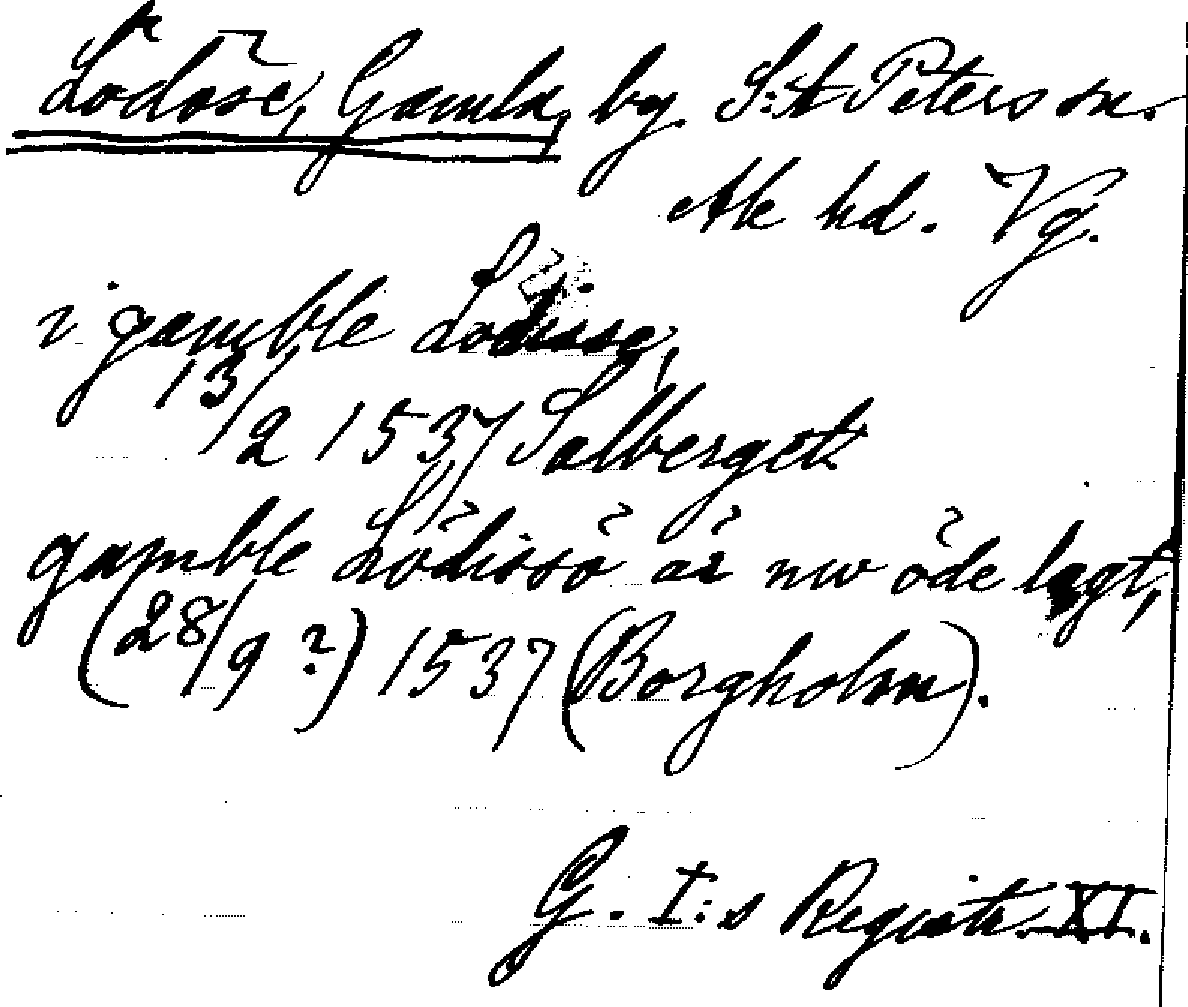 Lödöse, Gamla, by. S:t Peters sn.
Ale hd. Vg.
i gamble Lödisse,
13/2 1537 Salberget
gamble Lödissö är nw öde lagt,
(28/9 ?) 1537 (Borgholm).
G. I:s Registr. XI.